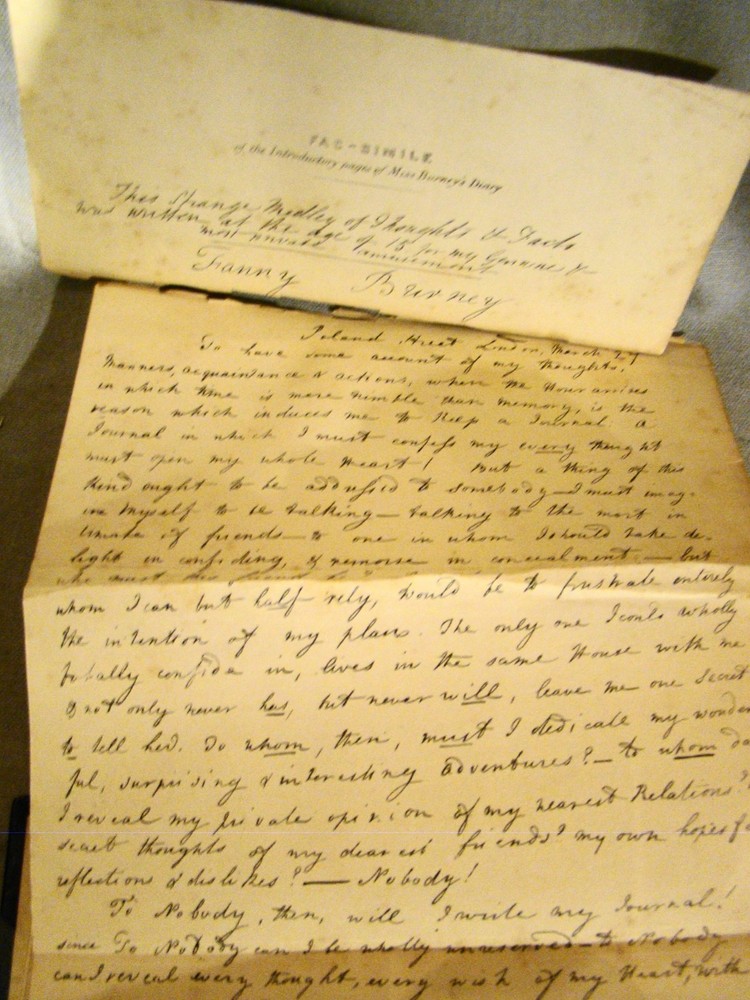 FAC-SIMILE
of the Introductory pages of Miss Burney's Diary
This strange Medley of Thoughts & Facts
was written at the age of 15 for my Genuine &
most private amusement
Fanny Burney
Poland Street London, March 27
To have some account of my thoughts,
Manners, acquaintance & actions, when the Hour arrives
in which time is more nimble than memory, is the
reason which induces me to keep a Journal. A
Journal in which I must confess my every thought
must open my whole Heart! But a thing of this
kind ought to be addressed to somebody—I must imag-
ine myself to be talking—talking to the most in
timate of friends—to one in whom I should take de-
light in confiding, & remorse in concealment.—But
who must this friend be?
whom I can but half rely, would be to frustrate entirely
the intention of my plan. The only one I could wholly
totally confide in, lives in the same House with me
& not only never has, but never will, leave me one secret
to tell her. To whom, then, must I dedicate my wonder
ful, surprising & interesting adventures?—to whom da
I reveal my private opinion of my nearest Relations?
secret thoughts of my dearest friends? my own hopes
reflections & dislikes?—Nobody!
To Nobody, then, will I write my Journal!
since To Nobody can I be wholly unreserved—to Nobody
can I reveal every thought, every wish of my Heart, with